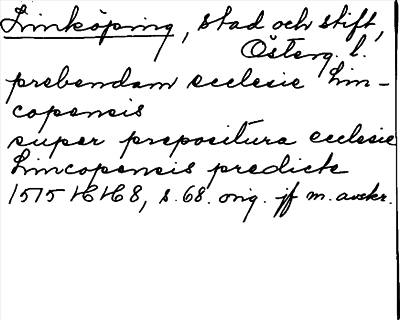 Linköping, stad och stift,
Österg. l.
prebendam ecclesie Lin-
copensis
super prepositura ecclesie
Lincopensis predicte
1515 16/6 8, s. 68. orig. jf m. avskr.